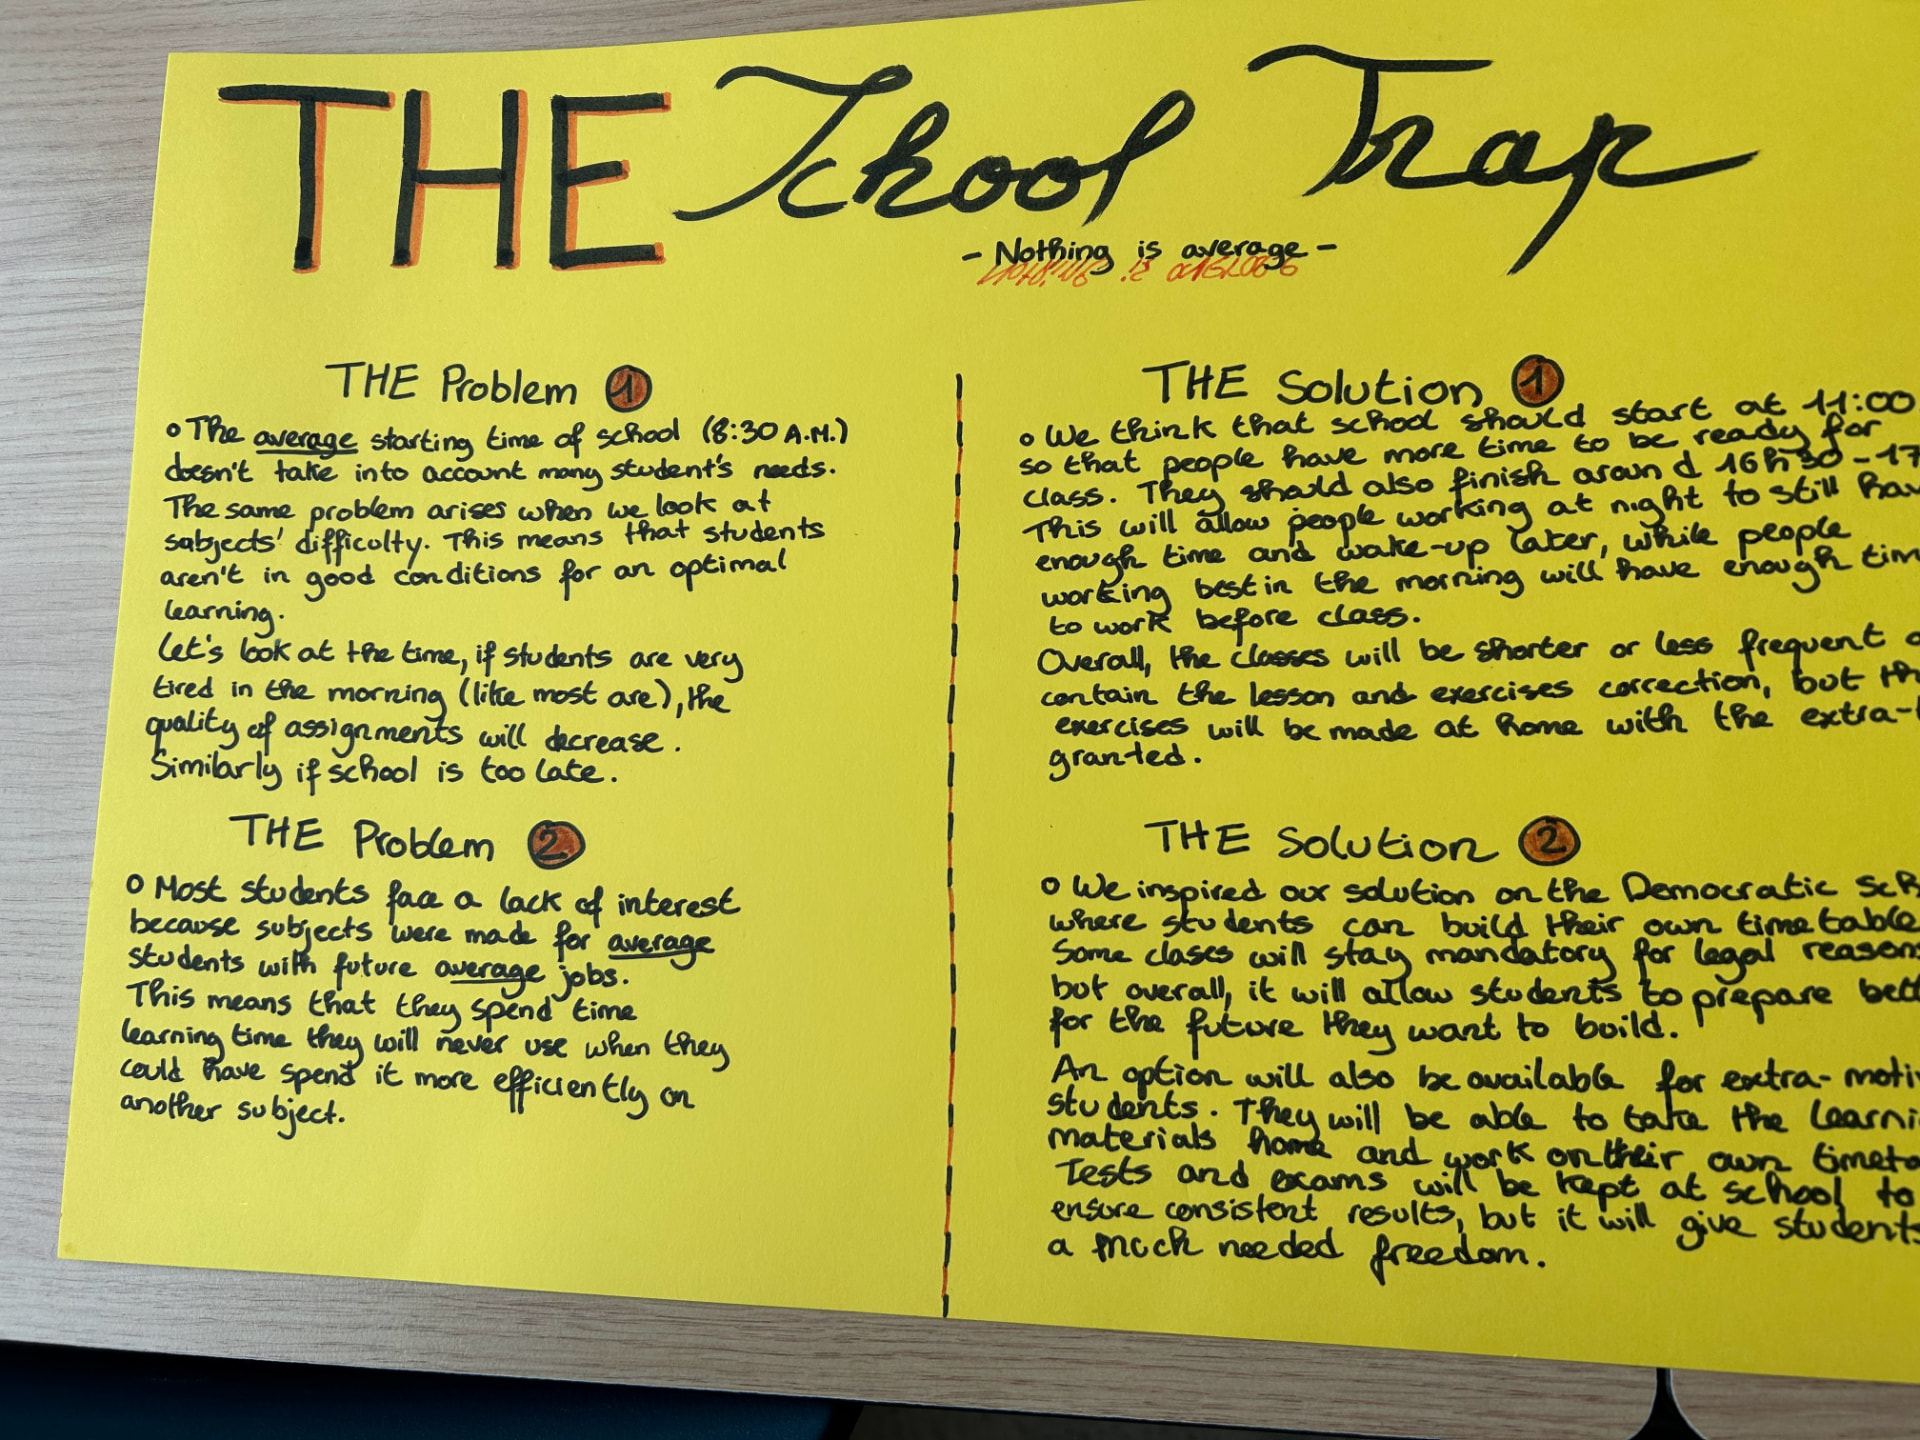 THE School Trap
- Nothing is average -
THE Problem 1
o The average starting time of school (8:30 A.M.)
doesn't take into account many student's needs.
The same problem arises when we look at
subjects' difficulty. This means that students
aren't in good conditions for an optimal
learning.
Let's look at the time, if students are very
tired in the morning (like most are), the
quality of assignments will decrease.
Similarly if school is too late.
THE Problem 2
o Most students face a lack of interest
because subjects were made for average
students with future average jobs.
This means that they spend time
learning time they will never use when they
could have spend it more efficiently on
another subject.
THE Solution 1
o We think that school should start at 11:00
so that people have more time to be ready for
class. They should also finish around 16h30-17
This will allow people working at night to still hav
enough time and wake-up later, while people
working best in the morning will have enough tim
to work before class.
Overall, the classes will be shorter or less frequent
contain the lesson and exercises correction, but th
exercises will be made at home with the extra-
granted.
THE Solution 2
o We inspired our solution on the Democratic Sch
where students can build their own timetable
Some clases will stay mandatory for legal reasons
but overall, it will allow students to prepare bett
for the future they want to build.
An option will also be available for extra-motiv
students. They will be able to take the learni
materials home and work on their own timeta
Tests and exams will be kept at school to
ensure consistent results, but it will give students
a much needed freedom.